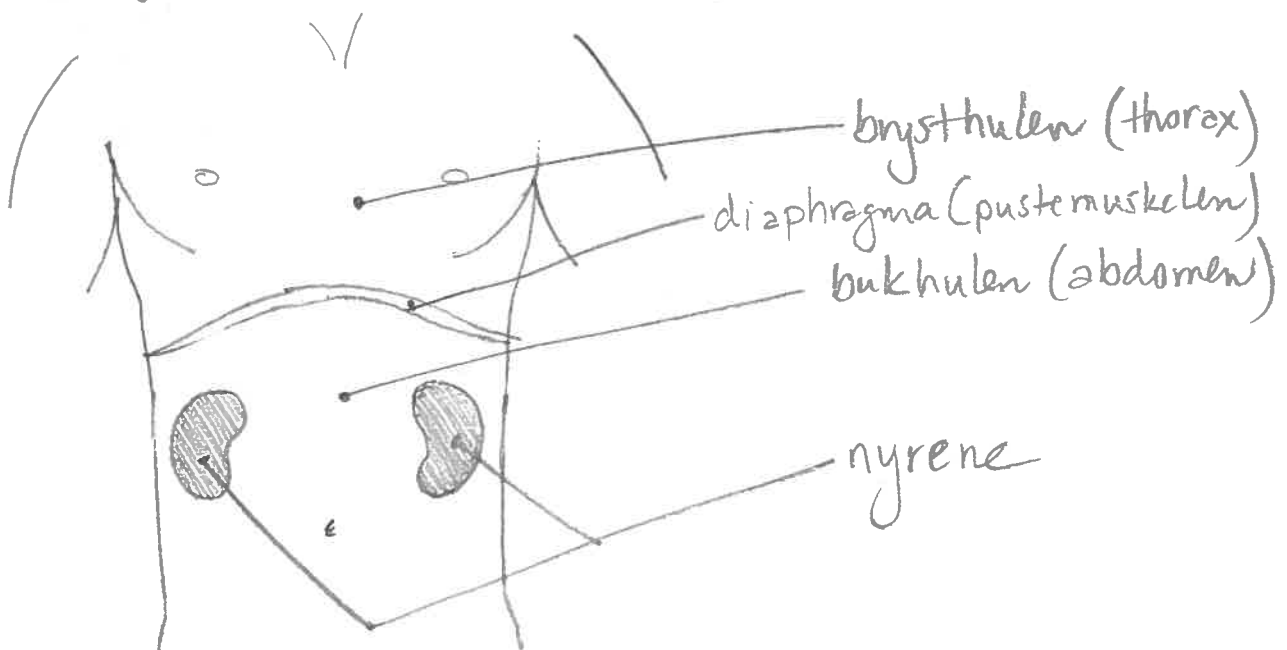 brysthulen (thorax)
diaphragma (pustemuskelen)
bukhulen (abdomen)
nyrene